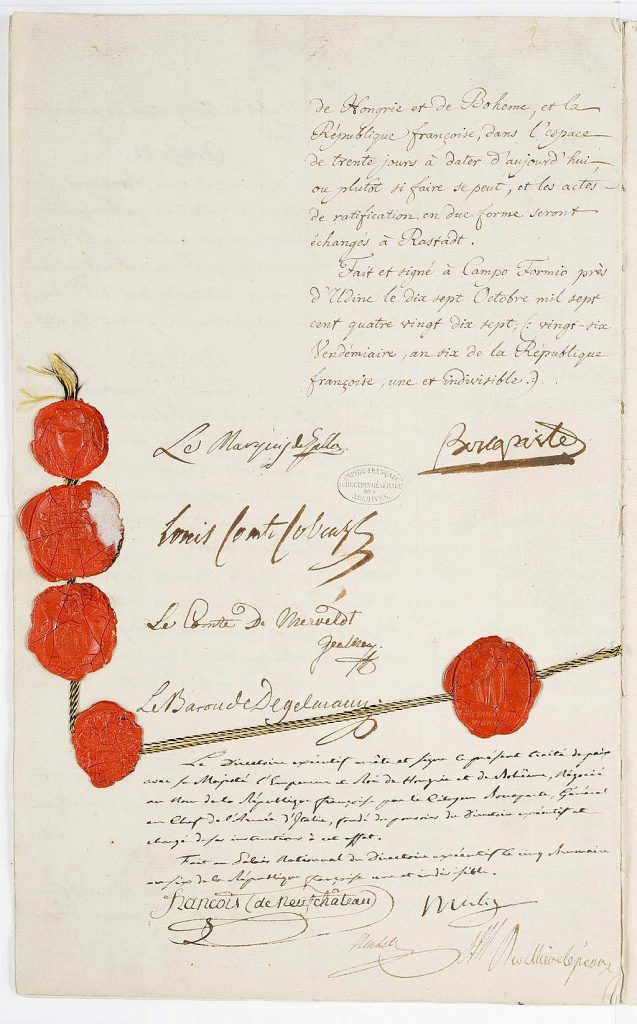 de Hongrie et de Boheme, et la
République françoise, dans l'espace
de trente jours à dater d'aujourd'hui,
ou plutôt si faire se peut, et les actes
de ratification en due forme seront
échangés à Rastadt.
Fait et signé à Campo Formio près
d'Udine le dix sept Octobre mil sept
cent quatre vingt dix sept; (: vingt-six
Vendémiaire, an six de la République
françoise, une et indivisible :).
Le Marquis de Gallo
Bonaparte
EMPIRE FRANÇAIS
DIRECTION GÉNÉRALE
DES
ARCHIVES.
Louis Comte Cobenzl
Le Comte De Merveldt
Le Baron de Degelmann
Le Directoire exécutif arrête et signe le présent traité de paix
avec sa Majesté l'Empereur et Roi de Hongrie et de Bohême, Négocié
au Nom de la République françoise par le Citoyen Bonaparte, Général
en Chef de l'Armée d'Italie, fondé de pouvoirs du Directoire exécutif et
chargé de ses instructions à cet effet.
Fait au Palais National du Directoire exécutif le cinq Brumaire
an six de la République françoise une et indivisible.
François (de Neufchâteau)
Merlin
L M Revelliere lépeaux